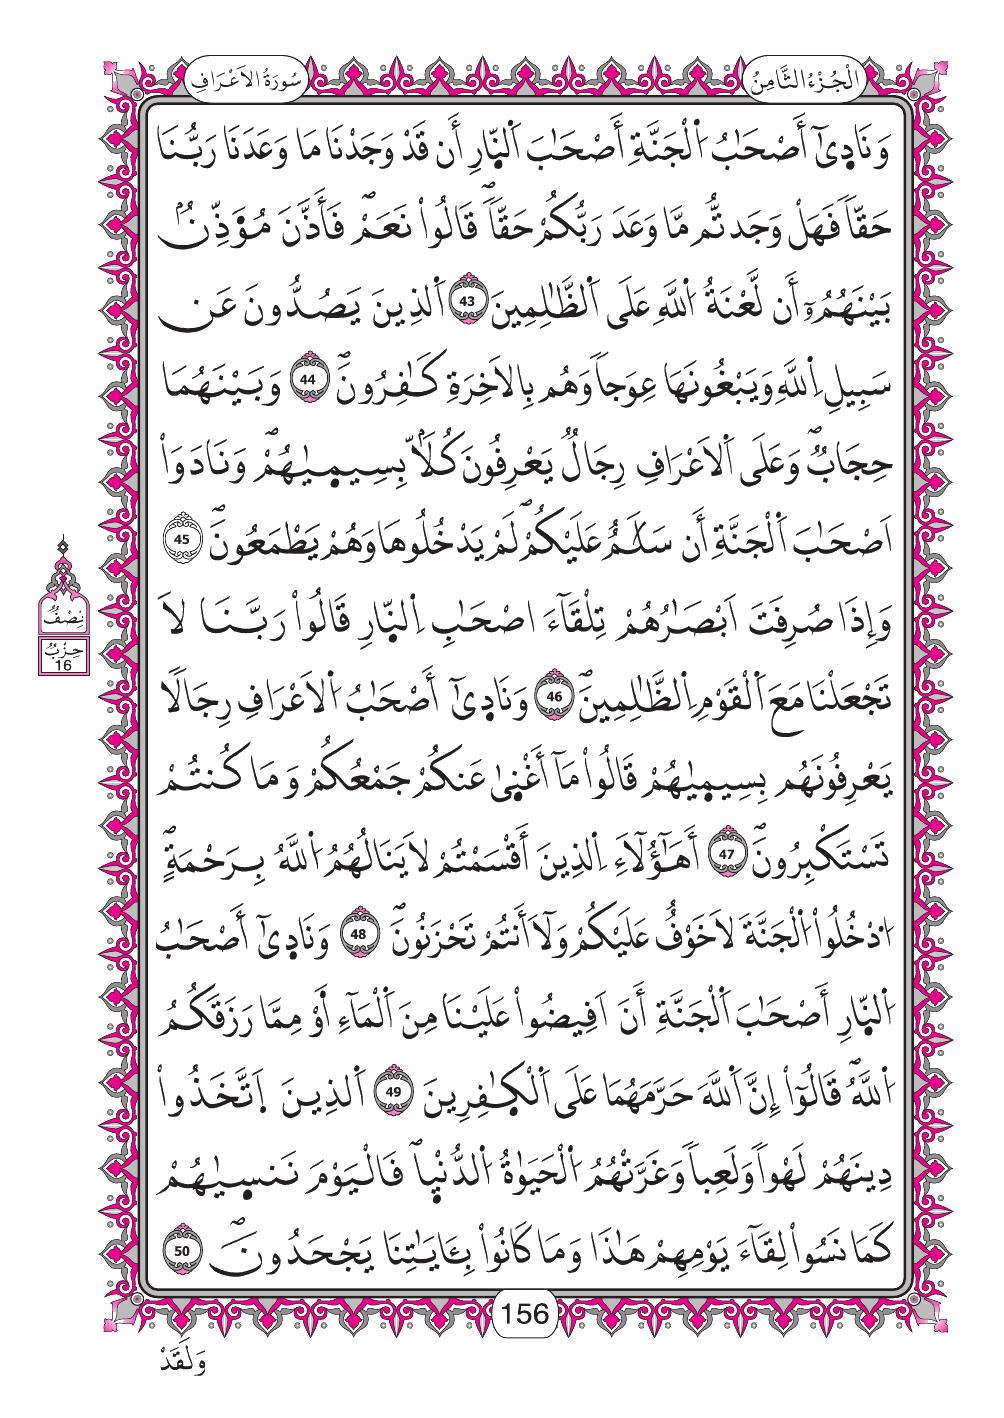 سُورَةُ الَاعْرَافِ
اَلْجُزْءُ الثَّامِنُ
وَنَادِىٰٓ أَصْحَٰبُ اُ۬لْجَنَّةِ أَصْحَٰبَ اَ۬لنّ۪ارِ أَن قَدْ وَجَدْنَا مَا وَعَدَنَا رَبُّنَا
حَقّاٗ فَهَلْ وَجَدتُّم مَّا وَعَدَ رَبُّكُمْ حَقّاٗۖ قَالُواْ نَعَمْۖ فَأَذَّنَ مُؤَذِّنُۢ
بَيْنَهُمُۥٓ أَن لَّعْنَةُ اُ۬للَّهِ عَلَى اَ۬لظَّٰلِمِينَ 43 اَ۬لذِينَ يَصُدُّونَ عَن
سَبِيلِ اِ۬للَّهِ وَيَبْغُونَهَا عِوَجاٗ وَهُم بِالَاخِرَةِ كَٰفِرُونَۖ 44 وَبَيْنَهُمَا
حِجَابٞۖ وَعَلَى اَ۬لَاعْرَافِ رِجَالٞ يَعْرِفُونَ كُلّاَۢ بِسِيم۪يٰهُمْۖ وَنَادَوَاْ
اَصْحَٰبَ اَ۬لْجَنَّةِ أَن سَلَٰمٌ عَلَيْكُمْۖ لَمْ يَدْخُلُوهَا وَهُمْ يَطْمَعُونَۖ 45
وَإِذَا صُرِفَتَ اَبْصَٰرُهُمْ تِلْقَآءَ اصْحَٰبِ اِ۬لنّ۪ارِ قَالُواْ رَبَّنَا لَا
تَجْعَلْنَا مَعَ اَ۬لْقَوْمِ اِ۬لظَّٰلِمِينَۖ 46 وَنَادِىٰٓ أَصْحَٰبُ اُ۬لَاعْرَافِ رِجَالاٗ
يَعْرِفُونَهُم بِسِيم۪يٰهُمْ قَالُواْ مَآ أَغْن۪يٰ عَنكُمْ جَمْعُكُمْ وَمَا كُنتُمْ
تَسْتَكْبِرُونَۖ 47 أَهَٰٓؤُلَآءِ اِ۬لذِينَ أَقْسَمْتُمْ لَا يَنَالُهُمُ اُ۬للَّهُ بِرَحْمَةٍۖ
اُ۟دْخُلُواْ اُ۬لْجَنَّةَ لَا خَوْفٌ عَلَيْكُمْ وَلَآ أَنتُمْ تَحْزَنُونَۖ 48 وَنَادِىٰٓ أَصْحَٰبُ
اُ۬لنّ۪ارِ أَصْحَٰبَ اَ۬لْجَنَّةِ أَنَ اَفِيضُواْ عَلَيْنَا مِنَ اَ۬لْمَآءِ اَوْ مِمَّا رَزَقَكُمُ
اُ۬للَّهُۖ قَالُوٓاْ إِنَّ اَ۬للَّهَ حَرَّمَهُمَا عَلَى اَ۬لْكٰ۪فِرِينَ 49 اَ۬لذِينَ اَ۪تَّخَذُواْ
دِينَهُمْ لَهْواٗ وَلَعِباٗ وَغَرَّتْهُمُ اُ۬لْحَيَوٰةُ اُ۬لدُّنْي۪اۖ فَالْيَوْمَ نَنس۪يٰهُمْ
كَمَا نَسُواْ لِقَآءَ يَوْمِهِمْ هَٰذَا وَمَا كَانُواْ بِـَٔايَٰتِنَا يَجْحَدُونَۖ 50
نِصْفُ
حِزْبٌ
16
156
وَلَقَدْ